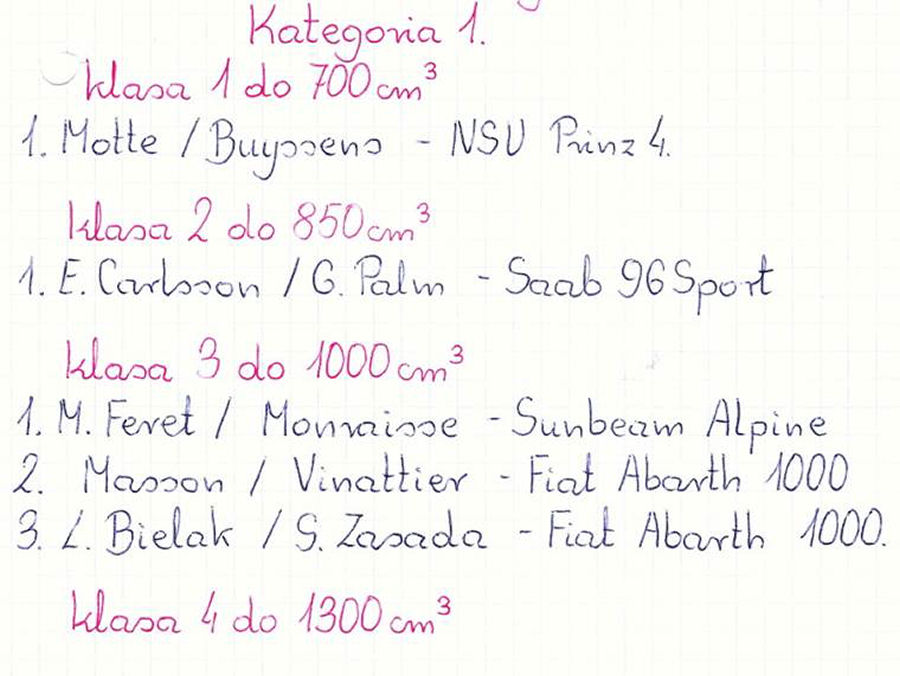 Kategoria 1.
klasa 1 do 700 cm³
1. Motte / Buyssens - NSU Prinz 4.
klasa 2 do 850 cm³
1. E. Carlsson / G. Palm - Saab 96 Sport
klasa 3 do 1000 cm³
1. M. Feret / Monraisse - Sunbeam Alpine
2. Masson / Vinattier - Fiat Abarth 1000
3. L. Bielak / S. Zasada - Fiat Abarth 1000.
klasa 4 do 1300 cm³